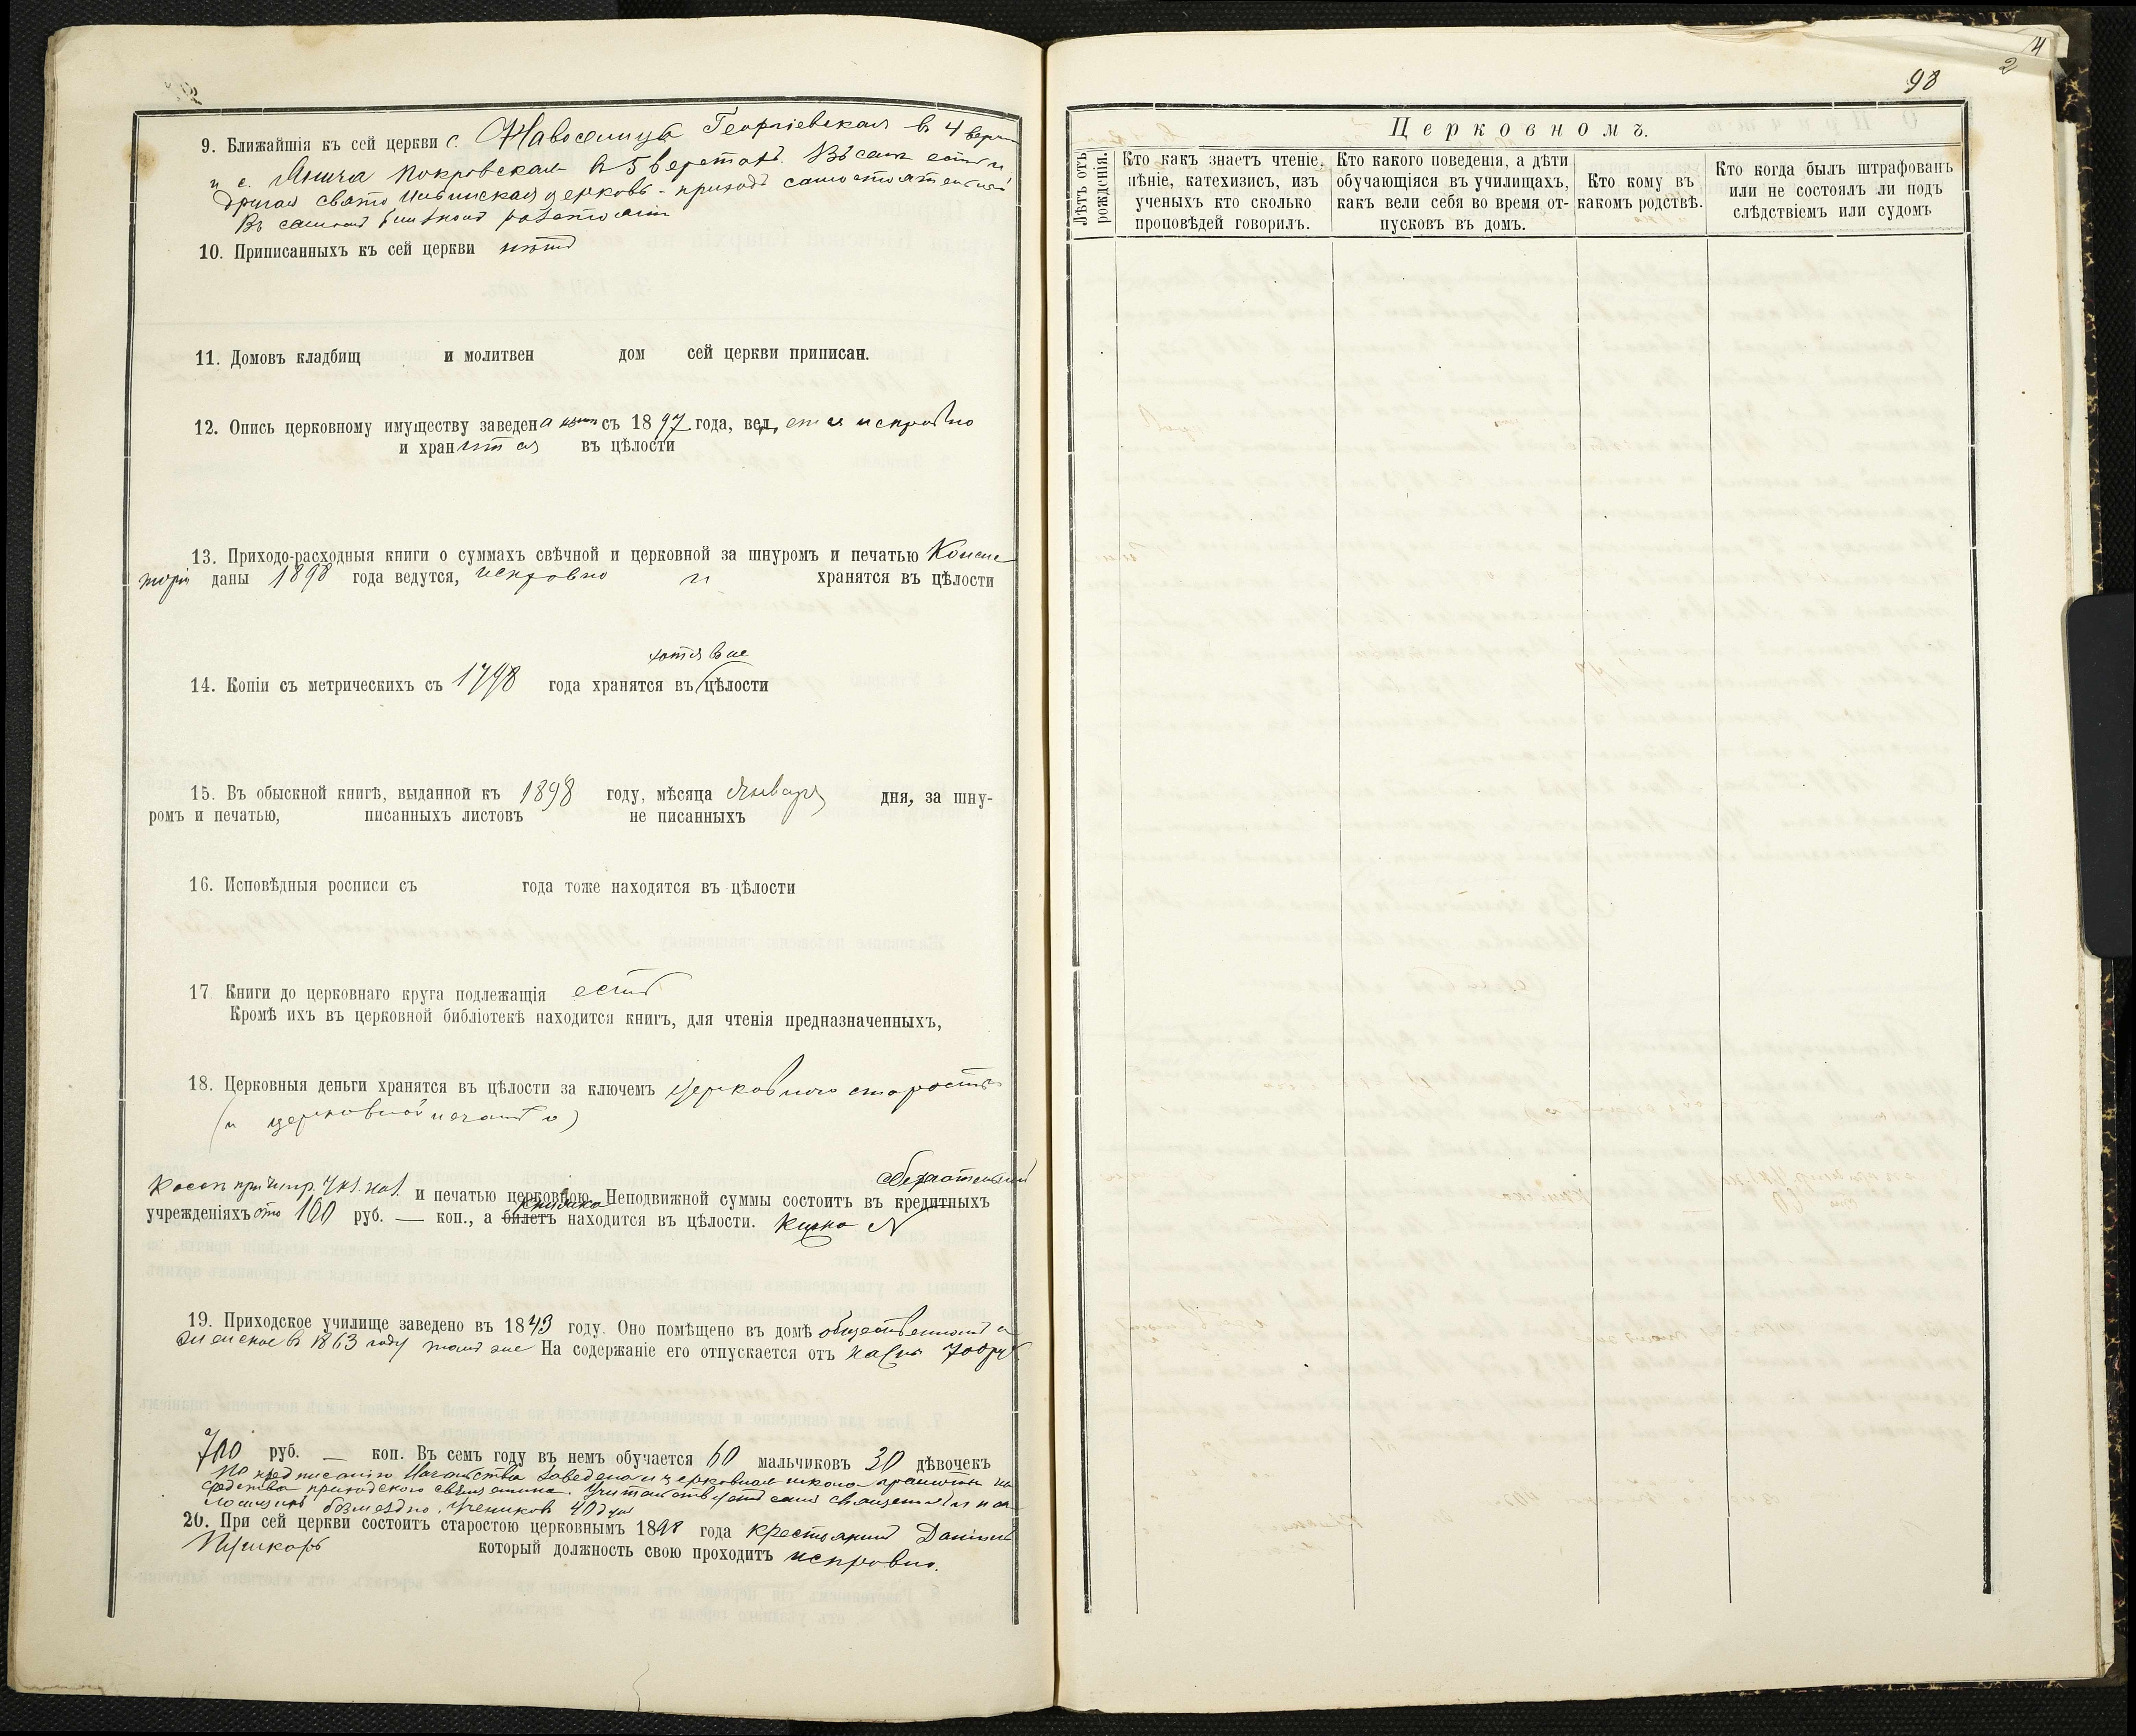 9. Ближайшія къ сей церкви с. Новоселица Георгіевская въ 4 верст
и с. Янича Покровская въ 5 верстахъ. Въ семъ селѣ и
другая свято церковь - приходъ самостоятельный
Въ самомъ близкомъ разстояніи
10. Приписанныхъ къ сей церкви нѣтъ
11. Домовъ кладбищ и молитвен дом сей церкви приписан.
12. Опись церковному имуществу заведена съ 1897 года, ведется исправно
и хранится въ цѣлости
13. Приходо-расходныя книги о суммахъ свѣчной и церковной за шнуромъ и печатью Консис
торіи даны 1898 года ведутся, исправно и хранятся въ цѣлости
хотя вне
14. Копіи съ метрическихъ съ 1798 года хранятся въ цѣлости
15. Въ обыскной книгѣ, выданной къ 1898 году, мѣсяца Января дня, за шну-
ромъ и печатью, писанныхъ листовъ не писанныхъ
16. Исповѣдныя росписи съ года тоже находятся въ цѣлости
17 Книги до церковнаго круга подлежащія есть
Кромѣ ихъ въ церковной библіотекѣ находится книгъ, для чтенія предназначенныхъ,
18. Церковныя деньги хранятся въ цѣлости за ключемъ Церковного старосты
(и церковной печатью)
сберегательной
и печатью церковною. Неподвижной суммы состоитъ въ кредитныхъ
книжка
учрежденіяхъ 100 руб. — коп., а билетъ находится въ цѣлости. N
19. Приходское училище заведено въ 1843 году. Оно помѣщено въ домѣ общественномъ а
женское въ 1863 году тамъ же На содержаніе его отпускается отъ казны 700 руб.
700 руб. — коп. Въ семъ году въ немъ обучается 60 мальчиковъ 30 дѣвочекъ
По предписанію Начальства заведена и церковная школа грамоты на
средства приходского священника. Учительствуетъ самъ священникъ и
безмездно. Учениковъ 40 душ
20. При сей церкви состоитъ старостою церковнымъ 1898 года крестьянинъ Даніилъ
Пушкарь который должность свою проходитъ исправно.
4
2
98
Церковномъ.
Лѣтъ отъ рожденія.
Кто какъ знаетъ чтеніе, пѣніе, катехизисъ, изъ ученыхъ кто сколько проповѣдей говорилъ.
Кто какого поведенія, а дѣти обучающіяся въ училищахъ, какъ вели себя во время отпусковъ въ домъ.
Кто кому въ какомъ родствѣ.
Кто когда былъ штрафованъ или не состоялъ ли подъ слѣдствіемъ или судомъ